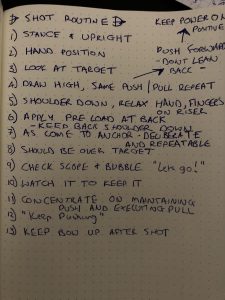 SHOT ROUTINE
KEEP POWER ON
POSITIVE
1) STANCE & UPRIGHT
2) HAND POSITION
PUSH FORWARD
- DON'T LEAN
BACK -
3) LOOK AT TARGET
4) DRAW HIGH, SAME PUSH / PULL REPEAT
5) SHOULDER DOWN, RELAX HAND, FINGERS
ON RISER
6) APPLY PRE LOAD AT BACK
- KEEP BACK SHOULDER DOWN
7) AS COME TO ANCHOR - DELIBERATE
AND REPEATABLE
8) SHOULD BE OVER TARGET
9) CHECK SCOPE & BUBBLE "Let's go!"
10) WATCH IT TO KEEP IT
11) CONCENTRATE ON MAINTAINING
PUSH AND EXECUTING PULL
12) "Keep Pushing"
13) KEEP BOW UP AFTER SHOT